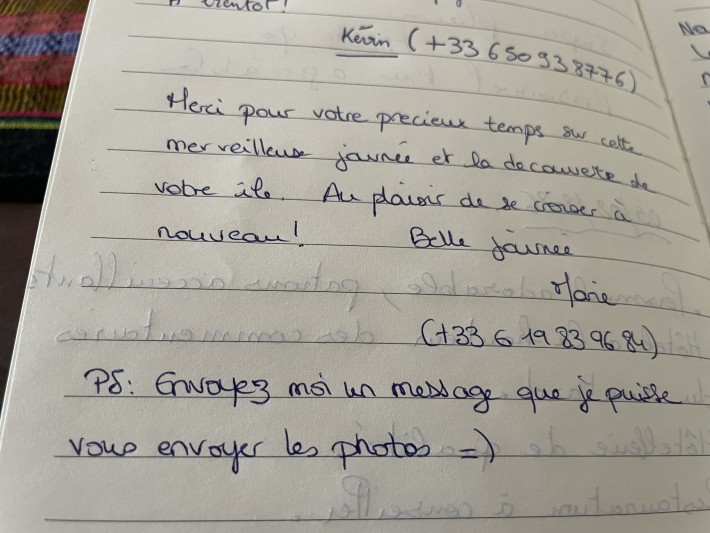 A bientot!
Kévin (+33 650938776)
Merci pour votre precieux temps sur cette
merveilleuse journée et la decouverte de
votre île. Au plaisir de se croiser à
nouveau! Belle journée
Marie
(+33 6 19 83 96 84)
PS: Envoyez moi un message que je puisse
vous envoyer les photos =)